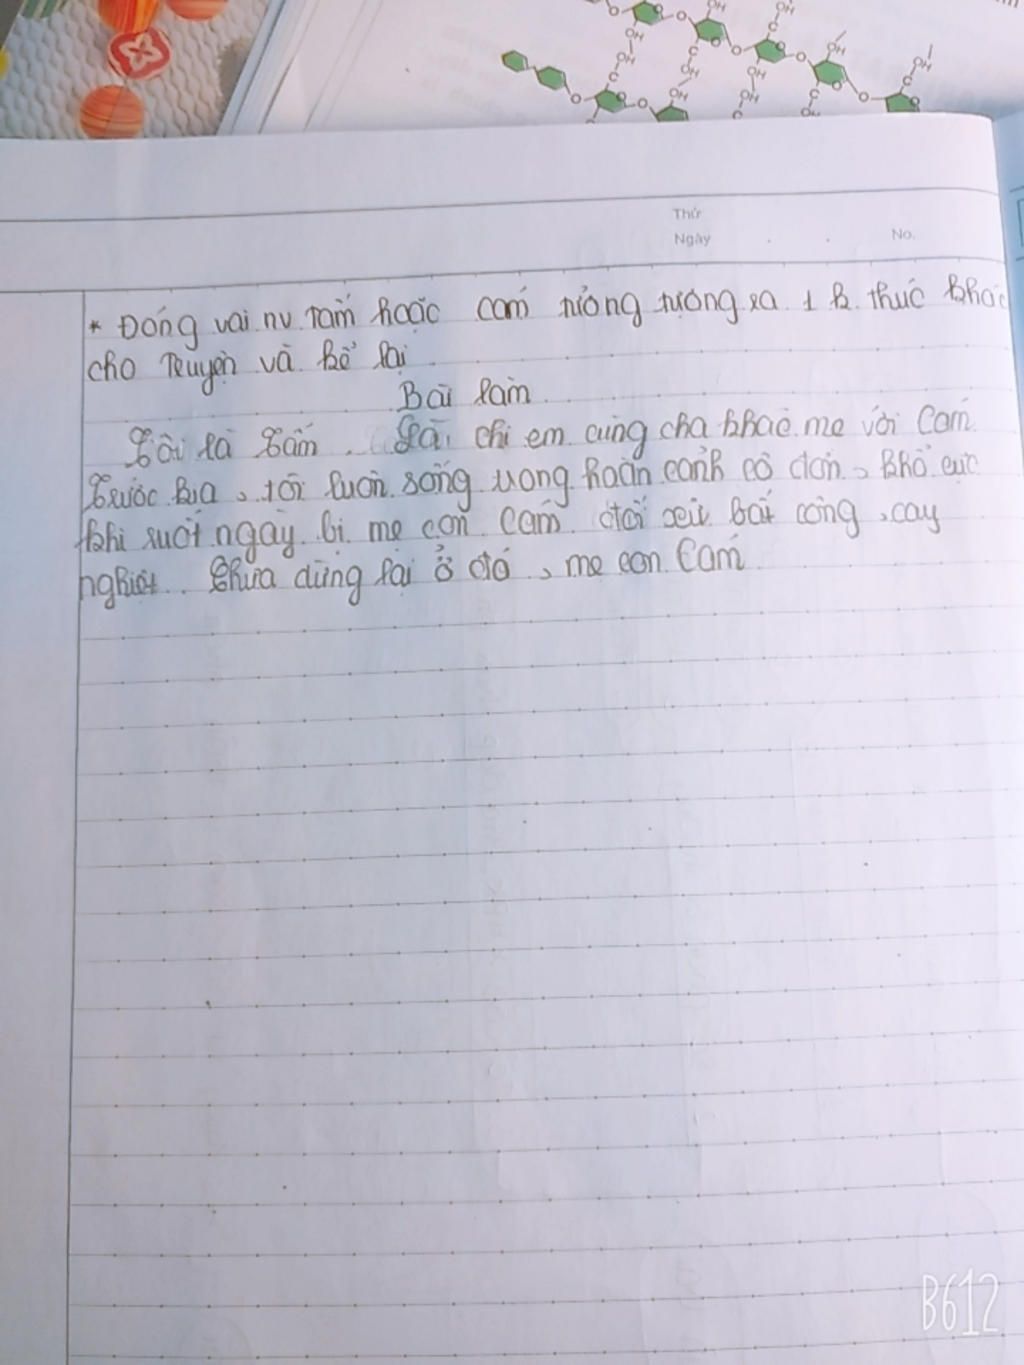 OH
OH
OH
OH
OH
OH
OH
OH
Thứ
Ngày
No.
* Đóng vai nv Tấm hoặc Cám tưởng tượng ra 1 k. thúc khác
cho Truyện và kể lại
Bài làm
Tôi là Tấm. Là chị em cùng cha khác mẹ với Cám.
Trước kia, tôi luôn sống trong hoàn cảnh cô đơn, khổ cực
khi suốt ngày bị mẹ con Cám đối xử bất công, cay
nghiệt. Chưa dừng lại ở đó, mẹ con Cám
B612